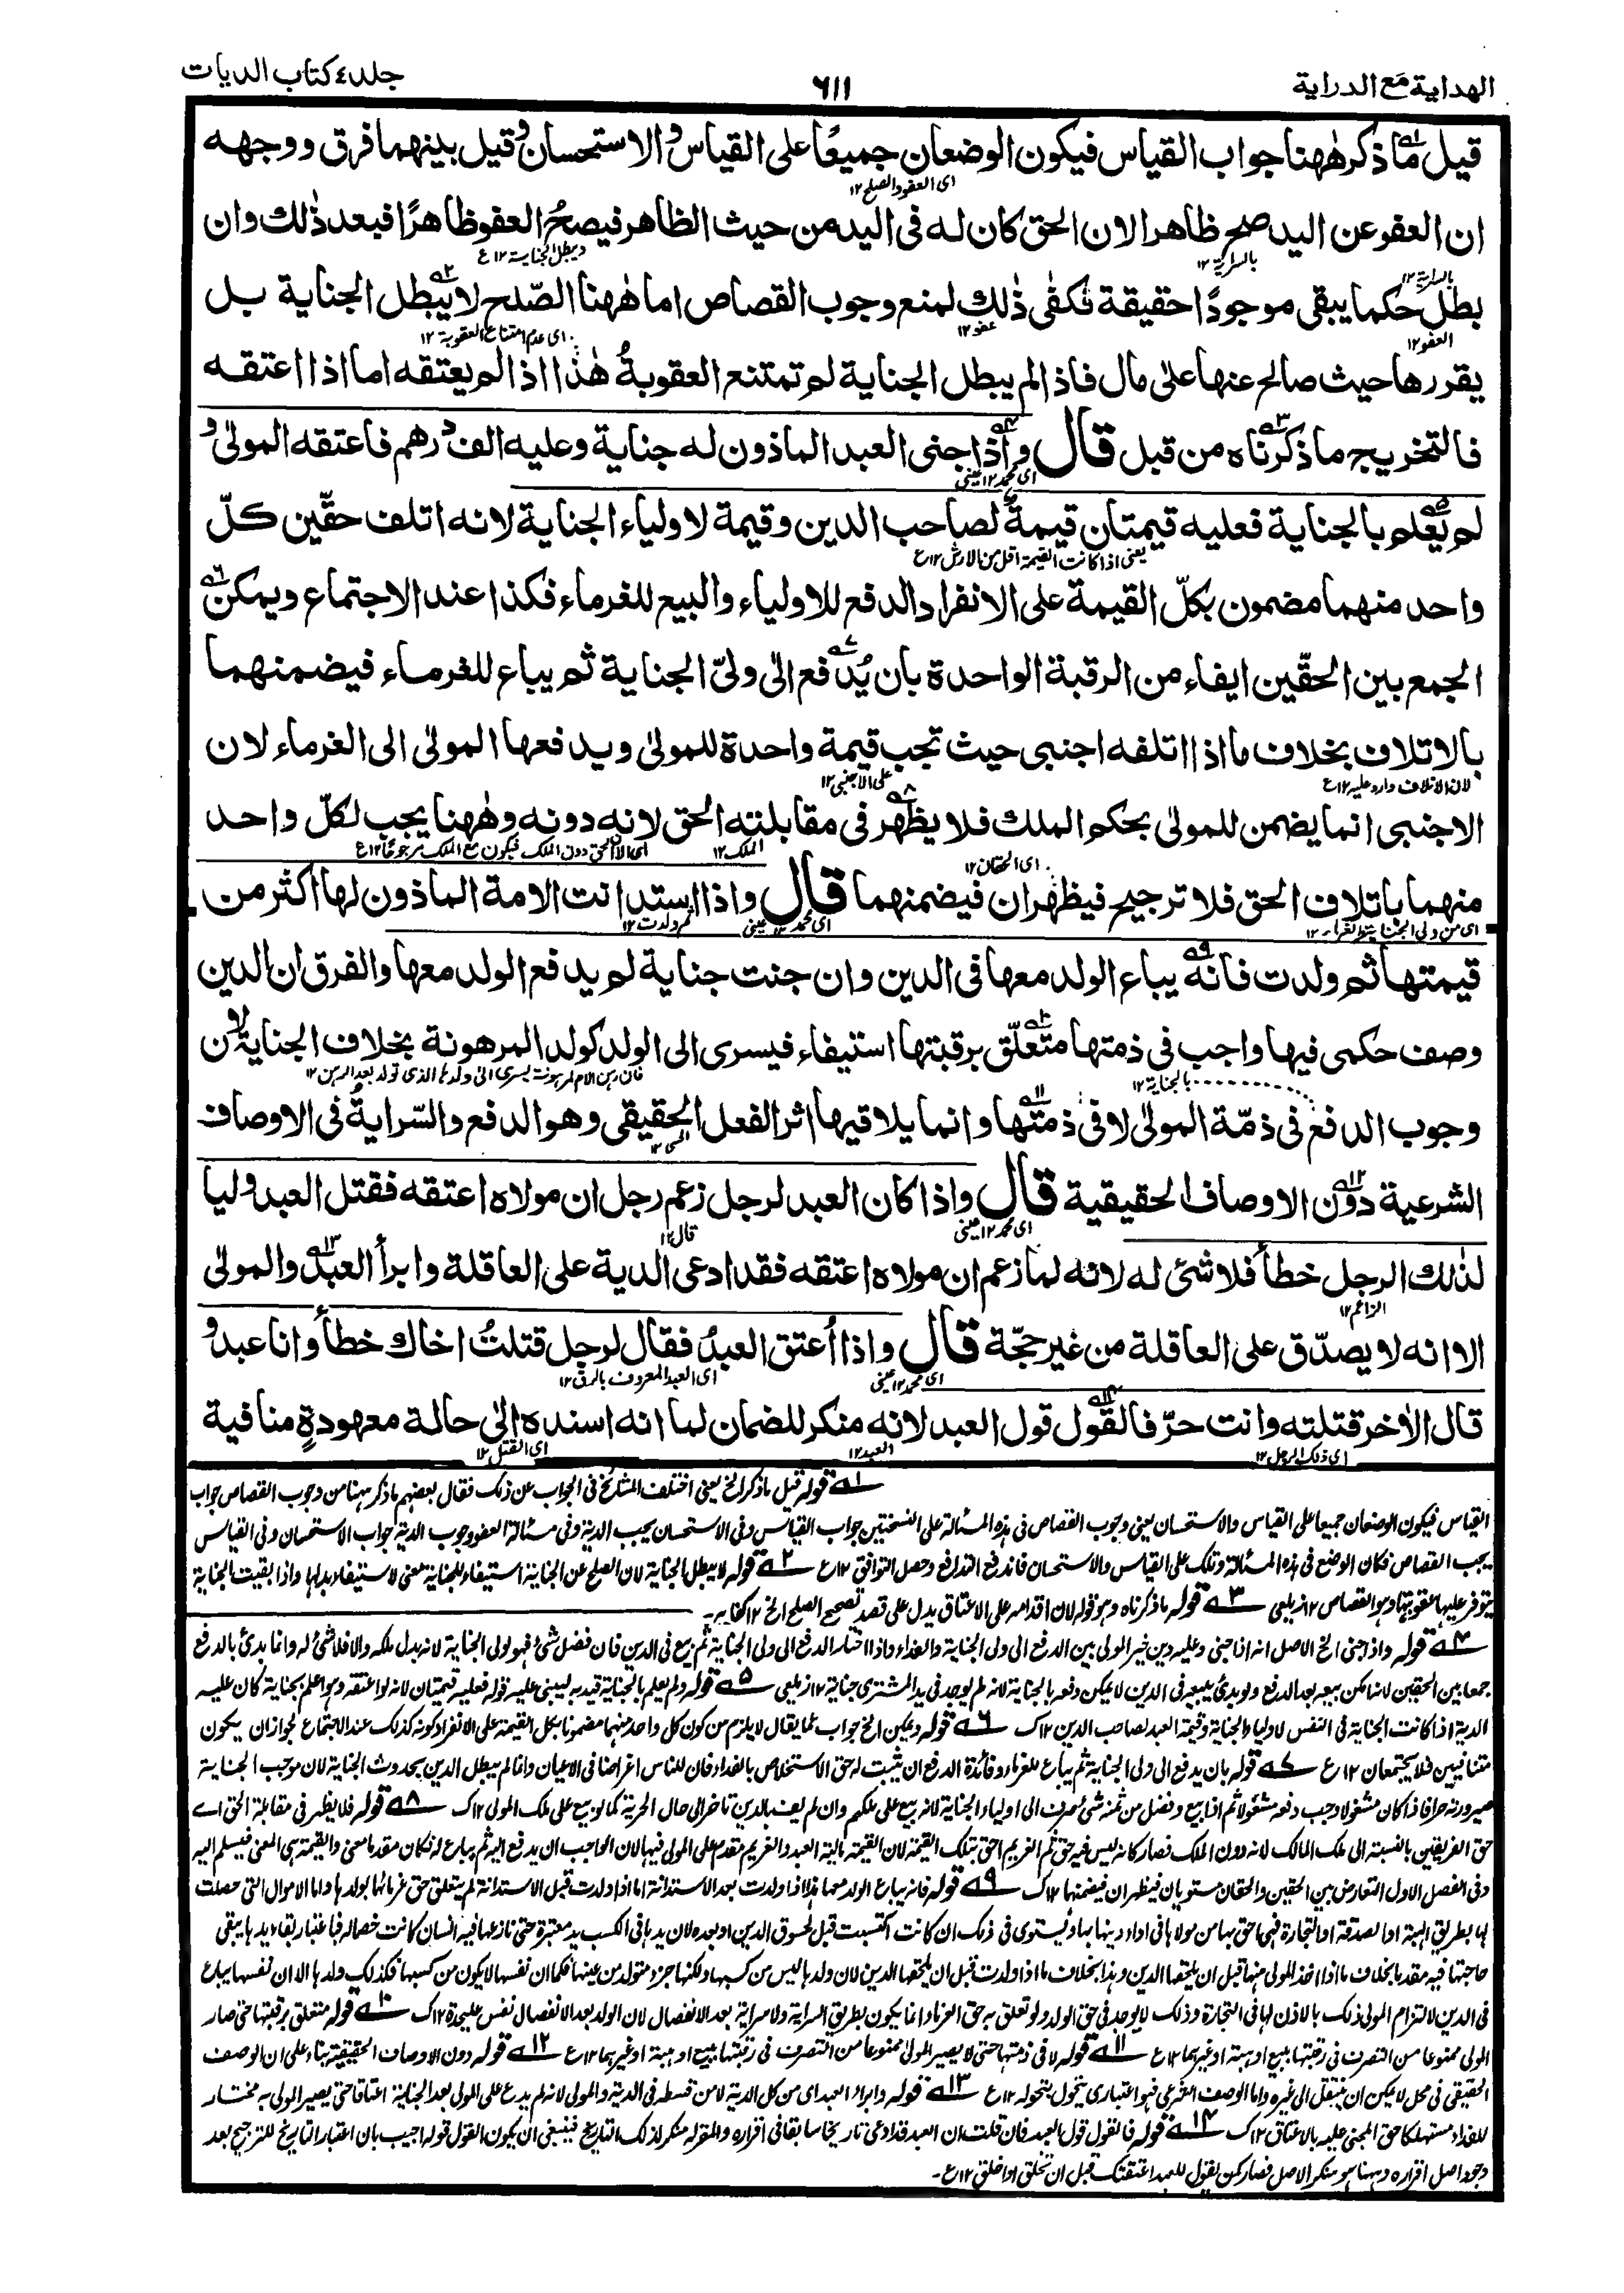 الهداية مع الدراية
٦١١
جلد ٤ كتاب الديات
قيل ما ذكر هٰهنا جواب القياس فيكون الوضعان جميعًا على القياس والاستحسان وقيل بينهما فرق ووجهه
اى العفو والصلح ١٢
ان العفو عن اليد صح ظاهرا لان الحق كان له فى اليد من حيث الظاهر فيصحُ العفو ظاهرًا فبعد ذٰلك وان
بالسراية ١٢
ويبطل الجناية ١٢ ع
بطل حكما يبقى موجودًا حقيقة فكفٰى ذٰلك لمنع وجوب القصاص اما هٰهنا الصّلح لا يبطل الجناية بل
العفو ١٢
عفو ١٢
اى عدم امتناع العقوبة ١٢
يقررها حيث صالح عنها علىٰ مال فاذا لم يبطل الجناية لم تمتنع العقوبةُ هٰذا اذا لم يعتقه اما اذا اعتقه
فالتخريج ما ذكرناه من قبل قال واذا جنى العبد الماذون له جناية وعليه الف درهم فاعتقه المولىٰ و
اى محمد ١٢ عينى
لم يعلم بالجناية فعليه قيمتان قيمةٌ لصاحب الدين وقيمة لاولياء الجناية لانه اتلف حقّين كلّ
يعنى اذا كانت القيمة اقل من الارش ١٢ ع
واحد منهما مضمون بكلّ القيمة على الانفراد الدفع للاولياء والبيع للغرماء فكذا عند الاجتماع ويمكن
الجمع بين الحقّين ايفاء من الرقبة الواحدة بان يُدفع الىٰ ولىّ الجناية ثم يباع للغرماء فيضمنهما
بالاتلاف بخلاف ما اذا اتلفه اجنبى حيث تجب قيمة واحدة للمولىٰ ويدفعها المولىٰ الى الغرماء لان
لان الاتلاف وارد عليه ١٢ ع
على الاجنبى ١٢
الاجنبى انما يضمن للمولىٰ بحكم الملك فلا يظهر فى مقابلته الحق لانه دونه وهٰهنا يجب لكلّ واحد
الملك ١٢
اى لان الحق دون الملك فيكون مع الملك مرجوحًا ١٢ ع
اى الحقان ١٢
منهما باتلاف الحق فلا ترجيح فيظهران فيضمنهما قال واذا استدانت الامة الماذون لها اكثر من
اى من ولى الجناية والغرماء ١٢
اى محمد ١٢ عينى
ثم ولدت ١٢
قيمتها ثم ولدت فانه يباع الولد معها فى الدين وان جنت جناية لم يدفع الولد معها والفرق ان الدين
وصف حكمى فيها واجب فى ذمتها متعلّق برقبتها استيفاء فيسرى الى الولد كولد المرهونة بخلاف الجناية لان
بالجناية ١٢
فان رهن الام المرهونة يسرى الىٰ ولدها الذى تولد بعد الرهن ١٢
وجوب الدفع فى ذمّة المولىٰ لا فى ذمتها وانما يلاقيها اثر الفعل الحقيقى وهو الدفع والسّرايةُ فى الاوصاف
الشرعية دون الاوصاف الحقيقية قال واذا كان العبد لرجل زعم رجل ان مولاه اعتقه فقتل العبد وليا
اى محمد ١٢ عينى
قال ١٢
لذٰلك الرجل خطأً فلا شئ له لانه لما زعم ان مولاه اعتقه فقد ادعى الدية على العاقلة وابرأ العبد والمولىٰ
الزاعم ١٢
الا انه لا يصدّق على العاقلة من غير حجّة قال واذا اُعتق العبدُ فقال لرجل قتلتُ اخاك خطأً وانا عبد و
اى محمد ١٢ عينى
اى العبد المعروف بالرق ١٢
قال الاٰخر قتلته وانت حرّ فالقول قول العبد لانه منكر للضمان لما انه اسنده الىٰ حالة معهودةٍ منافية
اى ذلك الرجل ١٢
العبد ١٢
اى القتل ١٢
١ قوله قيل ما ذكر الخ يعنى اختلف المشائخ فى الجواب عن ذلك فقال بعضهم ما ذكر ههنا من وجوب القصاص جواب
القياس فيكون الوضعان جميعا على القياس والاستحسان يعنى وجوب القصاص فى هذه المسألة على النسختين جواب القياس وفى الاستحسان يجب الدية وفى مسألة العفو وجوب الدية جواب الاستحسان وفى القياس
يجب القصاص فكان الوضع فى هذه المسألة وتلك على القياس والاستحسان فاندفع التدافع وحصل التوافق ١٢ ع ٢ قوله لا يبطل الجناية لان الصلح عن الجناية استيفاء للجناية معنى لاستيفاء بدلها واذا بقيت الجناية
يتوفر عليها عقوبتها وهو القصاص ١٢ زيلعى ٣ قوله ما ذكرناه وهو قوله لان اقدامه على الاعتاق يدل على قصد تصحيح الصلح الخ ١٢ كفايه
٤ قوله واذا جنى الخ الاصل انه اذا جنى وعليه دين خير المولى بين الدفع الى ولى الجناية والفداء واذا اختار الدفع الى ولى الجناية ثم بيع فى الدين فان فضل شئ فهو لولى الجناية لانه بدل ملكه والا فلا شئ له وانما بدئ بالدفع
جمعا بين الحقين لانه امكن بيعه بعد الدفع ولو بدئ ببيعه فى الدين لا يمكن دفعه بالجناية لانه لم يوجد فى يد المشترى جناية ١٢ زيلعى ٥ قوله ولم يعلم بالجناية قيد به ليبنى عليه قوله فعليه قيمتان لانه لو اعتقه وهو اعلم بجناية كان عليه
الدية اذا كانت الجناية فى النفس لاولياء الجناية وقيمة العبد لصاحب الدين ١٢ ك ٦ قوله ويمكن الخ جواب عما يقال لا يلزم من كون كل واحد منهما مضمونا بكل القيمة على الانفراد كونه كذلك عند الاجتماع لجواز ان يكون
متنافيين فلا يجتمعان ١٢ ع ٧ قوله بان يدفع الى ولى الجناية ثم يباع للغرماء وفائدة الدفع ان يثبت له حق الاستخلاص بالفداء فان للناس اغراضا فى الاعيان وانما لم يبطل الدين بحدوث الجناية لان موجب الجناية
صيرورته جزاء فاذا كان مشغولا وجب دفعه مشغولا ثم اذا بيع وفضل من ثمنه شئ صرف الى اولياء الجناية لانه بيع على ملكهم وان لم يف بالدين تاخر الى حال الحرية كما لو بيع على ملك المولى ١٢ ك ٨ قوله فلا يظهر فى مقابلة الحق اے
حق الفريقين بالنسبة الى ملك المالك لانه دون الملك فصار كانه ليس فيه حق ثم الغريم احق بتلك القيمة لان القيمة مالية العبد والغريم مقدم على المولى فيها لان الواجب ان يدفع اليه ثم يباع له فكان مقدما معنى والقيمة هى المعنى فيسلم اليه
وفى الفصل الاول التعارض بين الحقين والحقان مستويان فيظهران فيضمنهما ١٢ ك ٩ قوله فانه يباع الولد معها هذا اذا ولدت بعد الاستدانة اما اذا ولدت قبل الاستدانة لم يتعلق حق غرمائها بولدها واما الاموال التى حصلت
لها بطريق الهبة او الصدقة او التجارة فهى احق بها من مولاها فى اداء دينها بها ويستوى فى ذلك ان كانت اكتسبت قبل لحوق الدين او بعده لان يدها فى الكسب يد معتبرة حتى لو نازعها فيه انسان كانت خصما له فباعتبار بقاء يدها يبقى
حاجتها فيه مقدما بخلاف ما اذا اخذ المولى منها قبل ان يلحقها الدين وهذا بخلاف ما اذا ولدت قبل ان يلحقها الدين لان ولدها ليس من كسبها ولكنها جزء متولد من عينها فكما ان نفسها لا يكون من كسبها فكذلك ولدها الا ان نفسها يباع
فى الدين لالتزام المولى ذلك بالاذن لها فى التجارة وذلك لا يوجد فى حق الولد ولو تعلق به حق الغرماء انما يكون بطريق السراية ولا سراية بعد الانفصال لان الولد بعد الانفصال نفس عليحدة ١٢ ك ١٠ قوله متعلق برقبتها حتى صار
المولى ممنوعا من التصرف فى رقبتها ببيع او هبة او غيرهما ١٢ ع ١١ قوله لا فى ذمتها حتى لا يصير المولى ممنوعا من التصرف فى رقبتها ببيع او هبة او غيرهما ١٢ ع ١٢ قوله دون الاوصاف الحقيقية بناء على ان الوصف
الحقيقى فى محل لا يمكن ان ينتقل الى غيره واما الوصف الشرعى فهو اعتبارى يتحول بتحوله ١٢ ع ١٣ قوله وابراء العبد اى من كل الدية لا من قسطه فى الدية والمولى لانه لم يدع على المولى بعد الجناية اعتاقا حتى يصير المولى به مختار
للفداء مستهلكا حق المجنى عليه بالاعتاق ١٢ ك ١٤ قوله فالقول قول العبد فان قلت ان العبد قد ادعى تاريخا سابقا فى اقراره والمقر له منكر لذلك التاريخ فينبغى ان يكون القول قوله اجيب بان اعتبار التاريخ للترجيح بعد
وجود اصل اقراره وههنا هو منكر الاصل فصار كمن يقول للعبد اعتقتك قبل ان تخلق او اخلق ١٢ ع